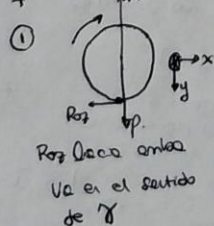 ①
x
y
Roz
P.
Roz hacia
va en el sentido
de γ